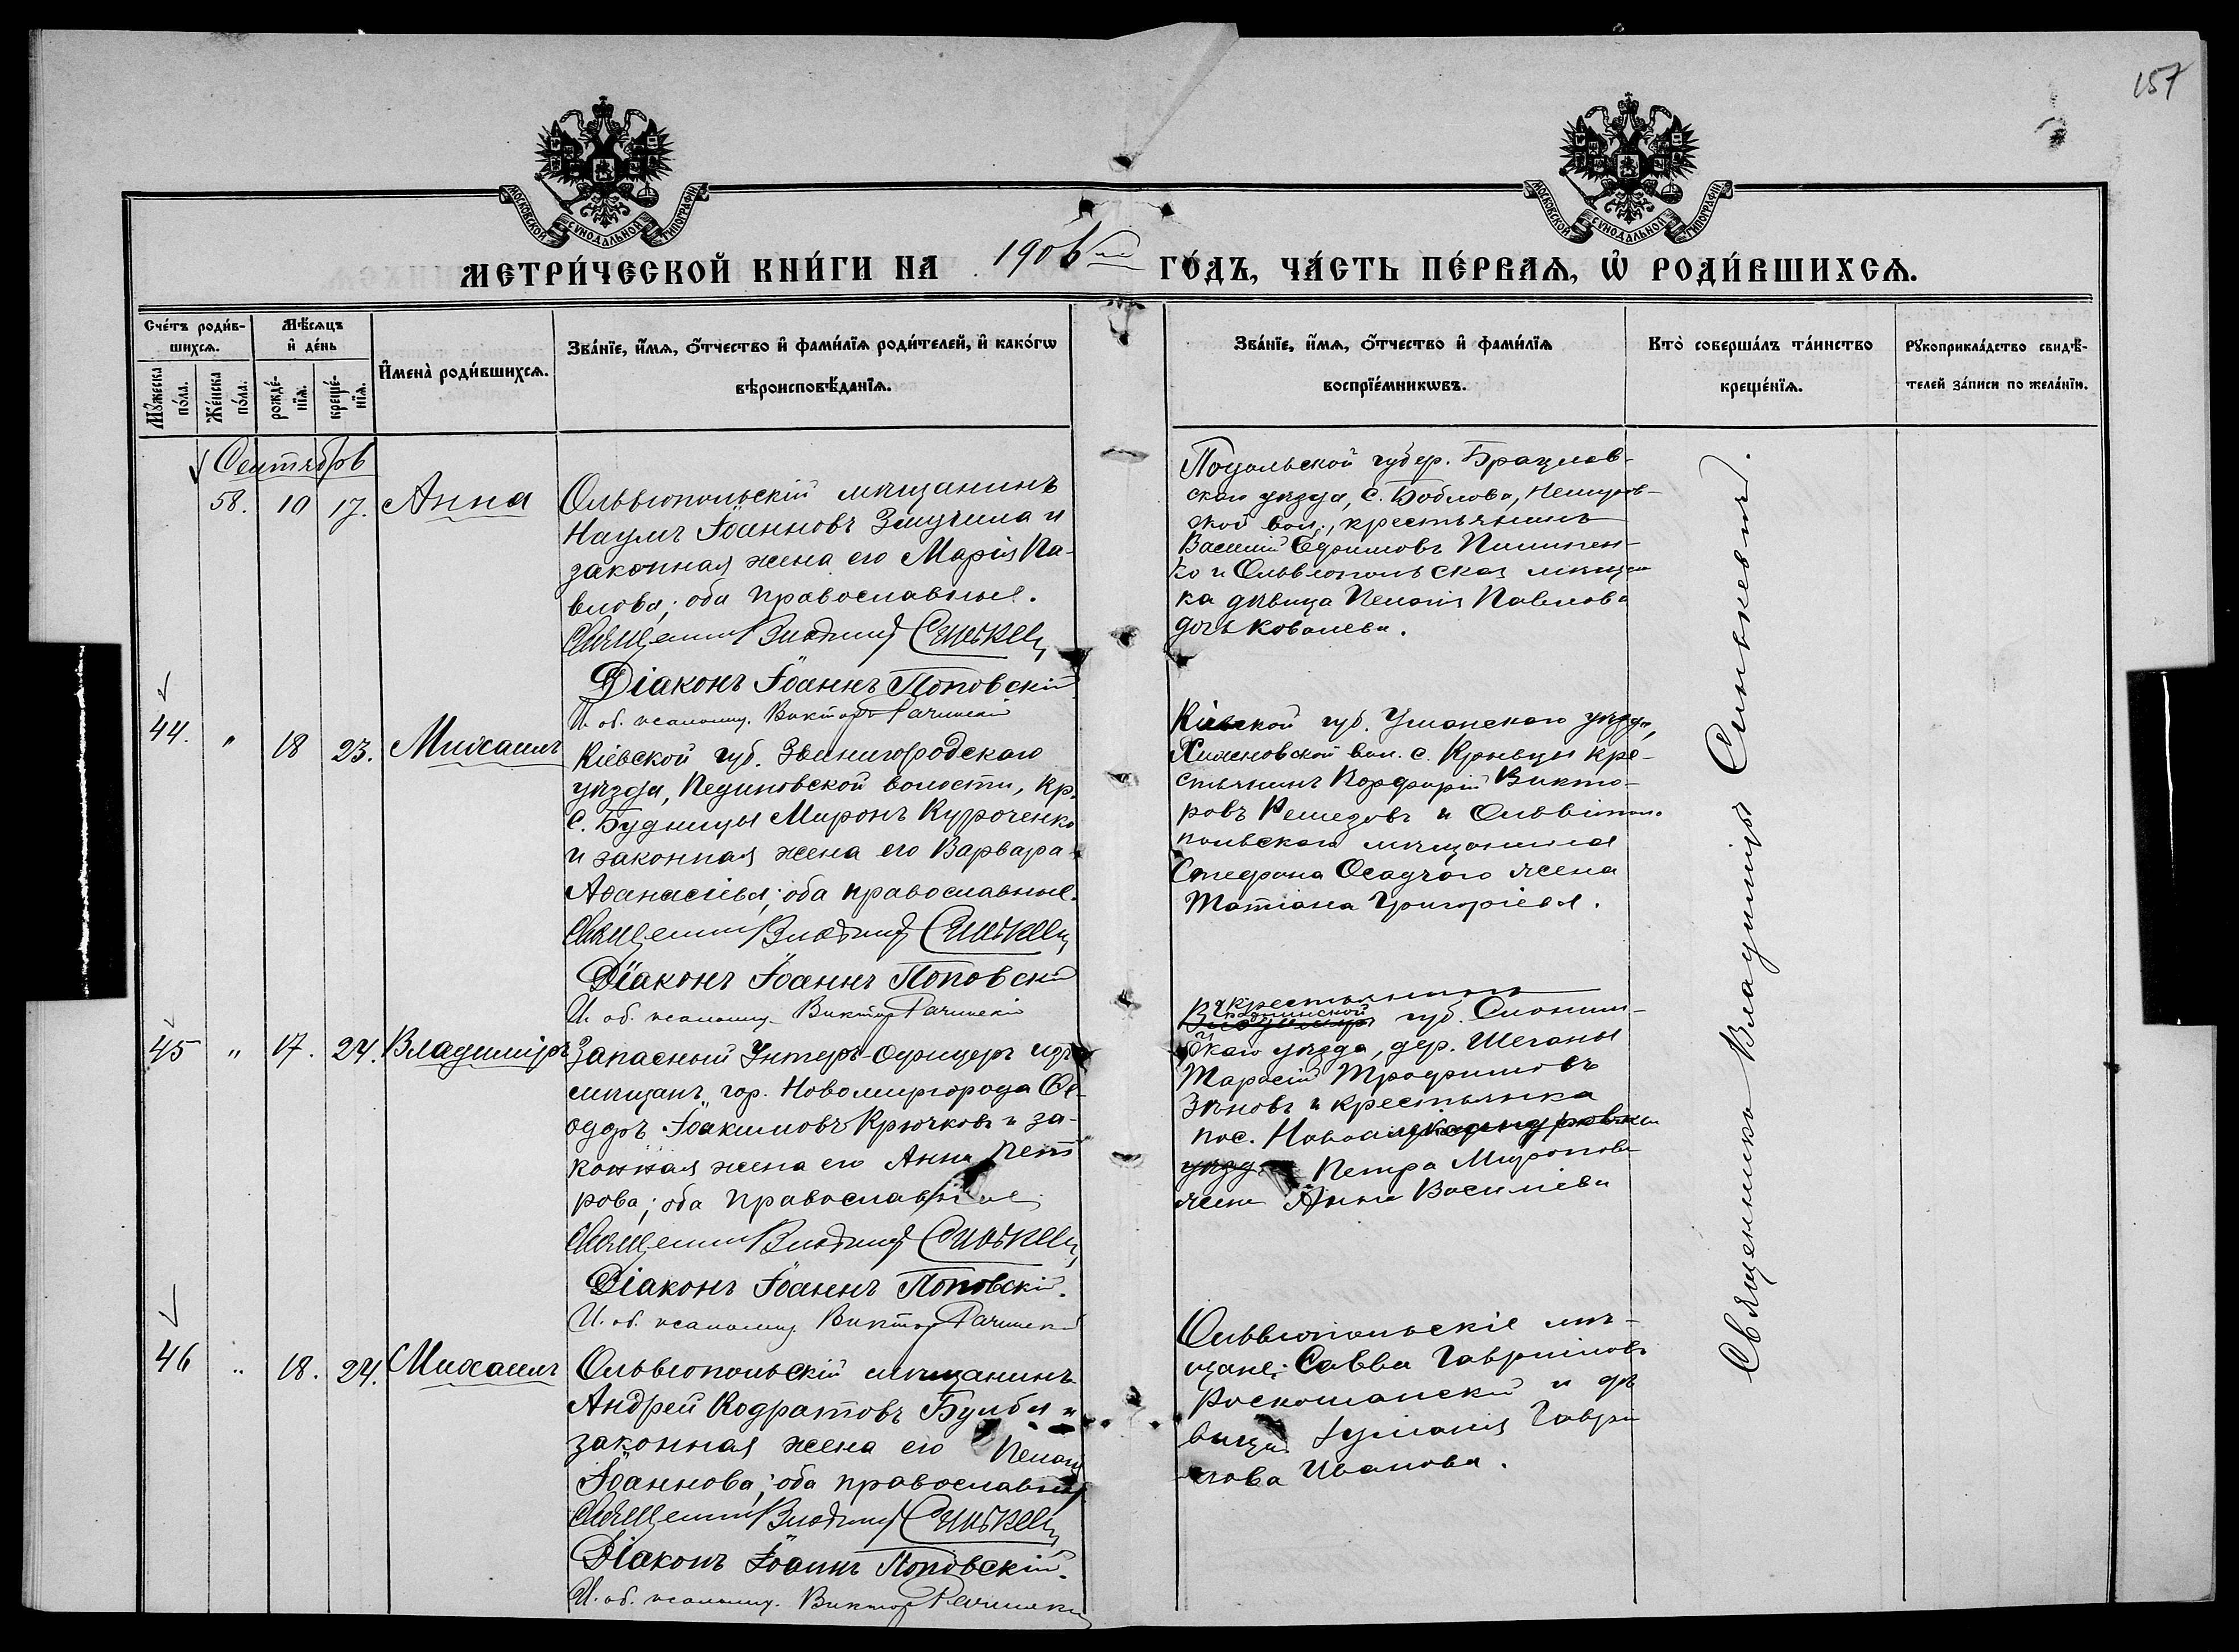 157
МОСКОВСКОЙ СУНОДАЛЬНОЙ ТИПОГРАФІИ
МОСКОВСКОЙ СУНОДАЛЬНОЙ ТИПОГРАФІИ
МЕТРИ́ЧЕСКОЙ КНИ́ГИ НА 1906 ГО́ДЪ, ЧА́СТЬ ПЕ́РВАѦ, Ѽ РОДИ́ВШИХСѦ.
Сче́тъ роди́в-
шихсѧ.
Мѣ́сѧцъ
и҆ де́нь
Мꙋ́жеска по́ла.
Же́нска по́ла.
рожде́-
нїѧ.
креще́-
нїѧ.
И҆мена̀ роди́вшихсѧ.
Зва́нїе, и҆́мѧ, ѻ҆́тчество и҆ фами́лїѧ роди́телей, и҆ како́гѡ
вѣроисповѣ́данїѧ.
Зва́нїе, и҆́мѧ, ѻ҆́тчество и҆ фами́лїѧ
воспрїе́мникѡвъ.
Кто̀ соверша́лъ та́инство
креще́нїѧ.
Рꙋкоприкла́дство свидѣ́-
телей за́писи по жела́нїю.
Сентябрь
58. 10 17. Анна
Ольвіопольскій мѣщанинъ
Наумъ Іоанновъ и
законная жена его Марія Па-
влова; оба православные.
Священникъ Владимір Синькевич
Діаконъ Іоаннъ Поповскій
И. об. псаломщ. Викторъ Рачинскій
Подольской губер. Брацлав-
скаго уѣзда, с. Боблова, Немиров-
ской вол., крестьянинъ
Василій Ефримовъ Пилипен-
ко и Ольвіопольская мѣщан
ка дѣвица Пелагія Павлова
дочь Ковалева.
44. " 18 23. Михаилъ
Кіевской губ. Звенигородскаго
уѣзда, волости, кр.
с. Будницы Миронъ Курроченко
и законная жена его Варвара
Аѳанасіева; оба православные.
Священникъ Владимір Синькевич
Діаконъ Іоаннъ Поповскій
И. об. псаломщ. Викторъ Рачинскій
Кіевской губ. Уманскаго уѣзда,
вол. с. кре-
стьянинъ Порфирій Викто-
ровъ Ремезовъ и Ольвіо
польскаго мѣщанина
Стефана Осадчаго жена
Татіана Григоріева.
45 " 17. 24. Владиміръ
Запасный Унтеръ-Офицеръ изъ
мѣщанъ гор. Новомиргорода Ѳе-
одоръ Іоакимовъ Крючковъ и за-
конная жена его Анна Пет
рова; оба православные
Священникъ Владимір Синькевич
Діаконъ Іоаннъ Поповскій.
И. об. псаломщ. Викторъ Рачинскій
крестьянинъ
губ. Слоним-
скаго уѣзда, дер.
Тарасій Трофимовъ
и крестьянка
пос.
уѣзда Петра Миронова
жена Анна Василіева
46 " 18. 24. Михаилъ
Ольвіопольскій мѣщанинъ
Андрей Кодратовъ Бульба и
законная жена его Пелагія
Іоаннова; оба православные
Священникъ Владимір Синькевич
Діаконъ Іоаннъ Поповскій.
И. об. псаломщ. Викторъ Рачинскій
Ольвіопольскіе мѣ-
щане: Савва Гавриловъ
Роскошанскій и дѣ
вица Іуліанія Гаври
лова Иванова.
Священникъ Владиміръ Синькевичъ.